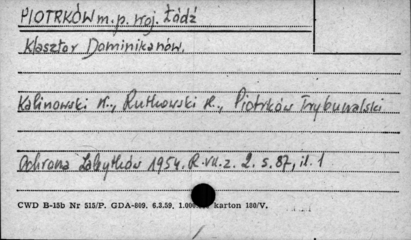 PIOTRKÓW m.p. woj. Łódź
Klasztor Dominikanów.
Kalinowski K., Rutkowski H., Piotrków Trybunalski
Ochrona Zabytków 1954. R.VII. z. 2. s. 87, il. 1
CWD B-15b Nr 515/P. GDA-809. 6.3.59. 1.000. karton 180/V.